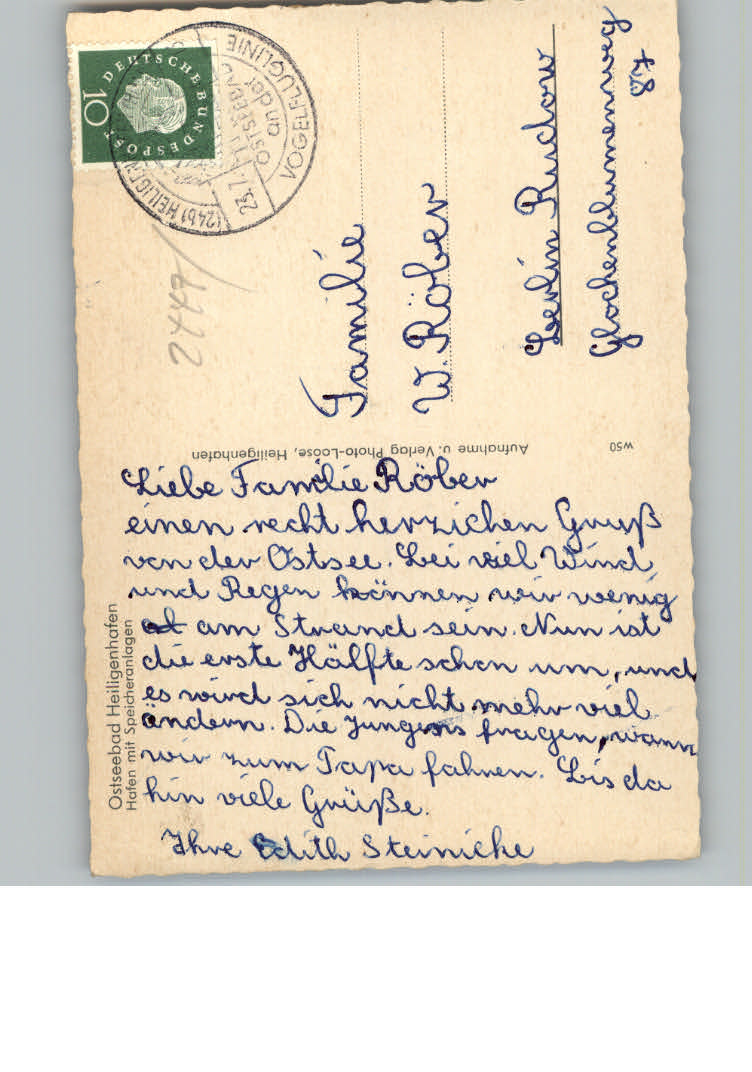 Ostseebad Heiligenhafen
Hafen mit Speicheranlagen
Liebe Familie Röber
einen recht herzichen Gruß
von der Ostsee. Bei viel Wind
und Regen können wir wenig
am Strand sein. Nun ist
die erste Hälfte schon um, und
es wird sich nicht mehr viel
ändern. Die Jungens fragen, wann
wir zum Papa fahren. Bis da
hin viele Grüße.
Ihre Edith Steinicke
Aufnahme u. Verlag Photo-Loose, Heiligenhafen
W50
DEUTSCHE BUNDESPOST
10
(24b) HEILIGEN
23.7.
OSTSEEBAD
an der
VOGELFLUGLINIE
2447
Familie
W. Röber
Berlin Rudow
Glockenblumenweg